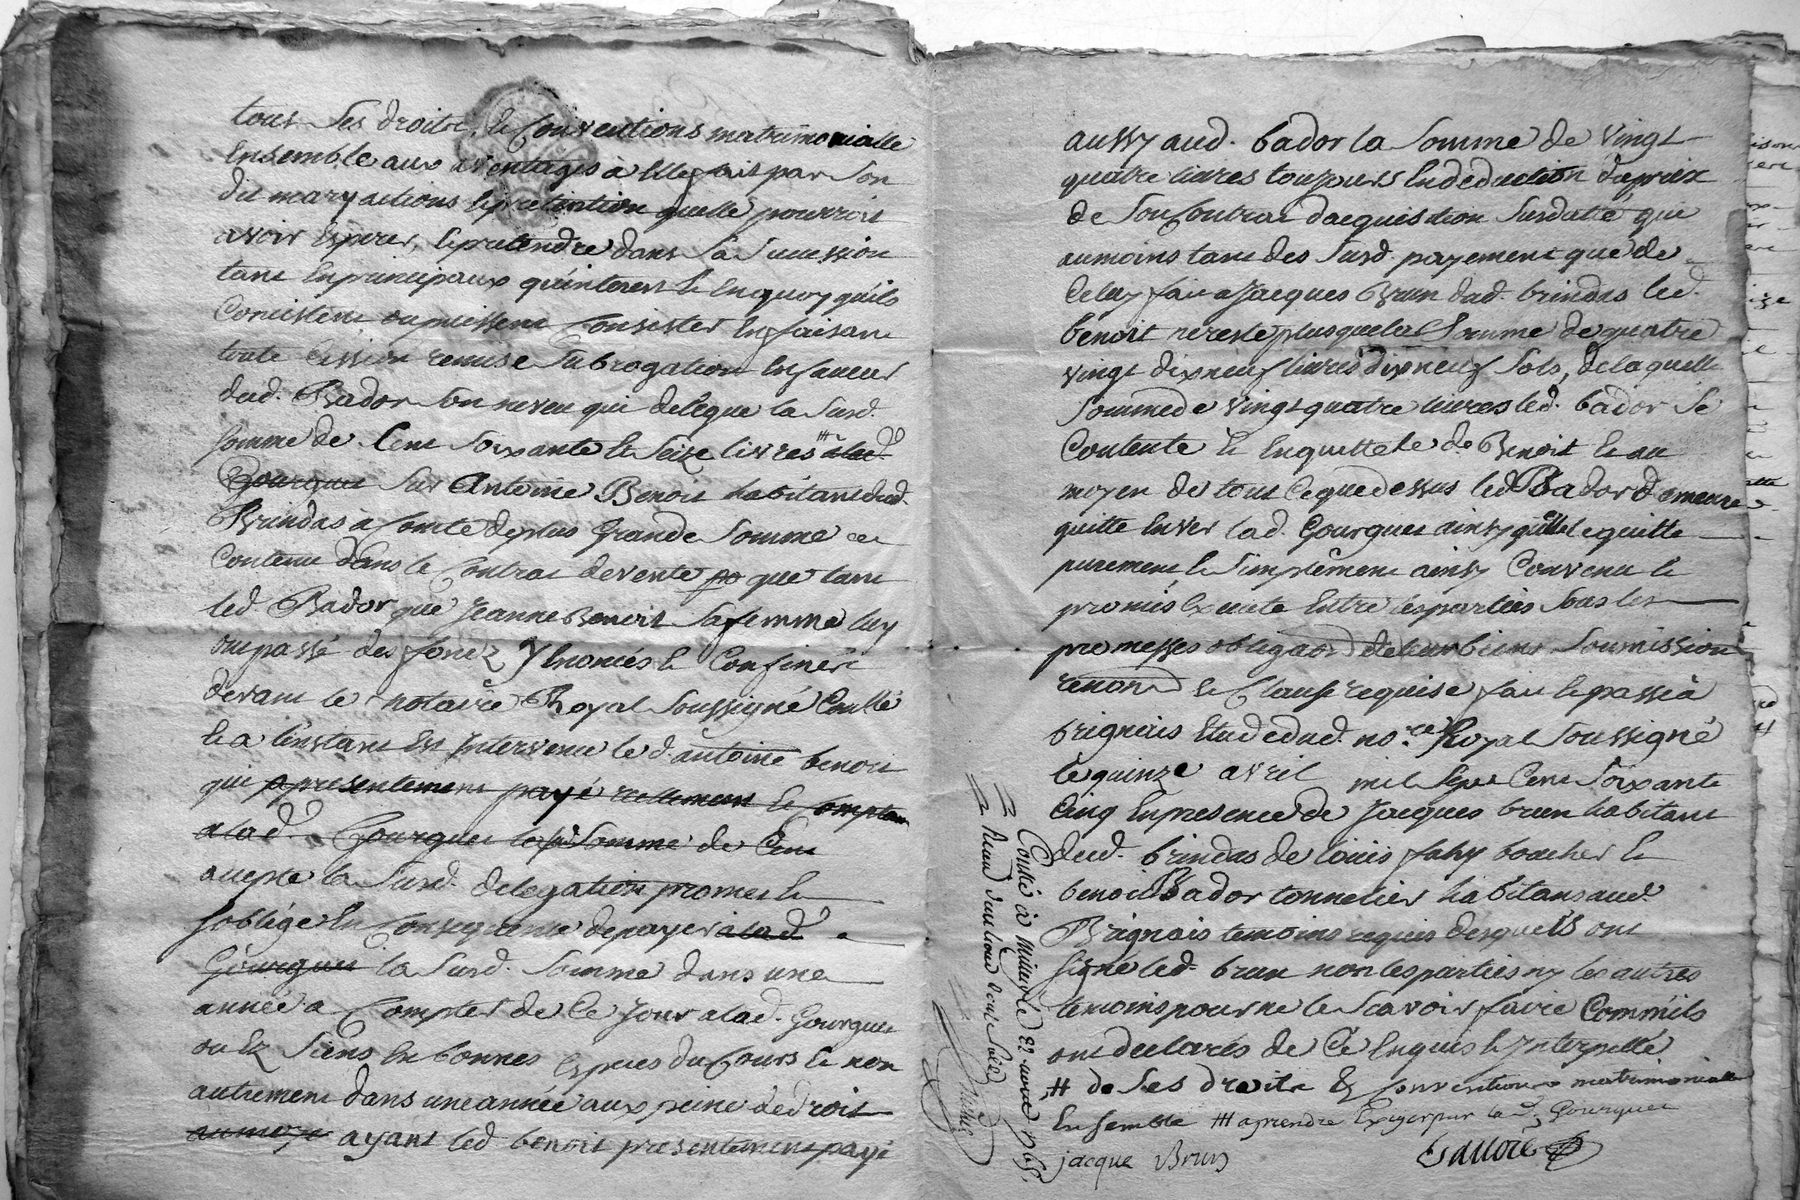 tous ses droits, & Conventions matrimonialle
Ensemble aux aventages à Elle fait par son
dit mary actions & pretention quelle pourroit
avoir Esperer, & pretendre dans sa Succession
tant En principaux qu'interest & En quoy qu'ils
Consistent ou puissent Consister En faisant
toute Cession remise Subrogation En faveur
dud. Bador son neveu qui delegue la susd.
somme de Cent soixante & seize livres # alad.
Gourguet sur Antoine Benoit habitant dud.
Brindas a Comte de plus grande somme
Contenu dans le Contrat de vente po que tant
led. Bador que Jeanne Benoit sa femme luy
ont passé des fondz y Enoncés & Confinés
devant le notaire Royal soussigné Conllé
& a l'instant Est Intervenu led. antoine benoit
qui a presentement payé reellement & Comptan
a lad. Gourguet la susd. somme de Cent
accepte la susd. delegation promet &
s'oblige En Consequence de payer a lad.
Gourguet la susd. somme dans une
année a Compter de Ce Jour a lad. Gourguet
ou Ez siens En bonnes Especes du Cours & non
autrement dans une année aux peine de droit
au moye ayant led. benoit presentement payé
aussy aud. bador la somme de vingt
quatre livres toujours En deduction du prix
de son Contrat d'acquisition susdatté que
au moins tant des susd. payement que de
Celuy fait a Jacques Brun dud. brindas led.
benoit ne reste plus que la Somme de quatre
vingt dix neuf livres dix neuf sols, de laquelle
somme de vingt quatre livres led. bador se
Contente & En quitte le de Benoit & au
moyen de tout Ce que dessus led. Bador demeure
quitte Enver lad. Gourguet ainsy qu'elle le quitte
purement & simplement ainsy Convenu &
promis Executé Entre les parties sous les
promesses obligaon de leur biens soumission
renon & Clause requise fait & passé à
brignais Etude dud. no.re Royal soussigné
le quinze avril mil sept Cent soixante
Cinq En presence de Jacques brun habitant
dud. brindas de louis fahy boucher &
benoit Bador tonnelier habitans aud.
Brignais temoins requis desquels ont
signé led. brun non les parties ny les autres
temoins pour ne le scavoir faire Comm'ils
ont declarés de Ce Enquis & Interpellé
# de ses droits & Conventions matrimonialle
Ensemble # a prendre Exiger par lad. Gourguet
jacque Brun
Conllé à
le 22 avril 1765